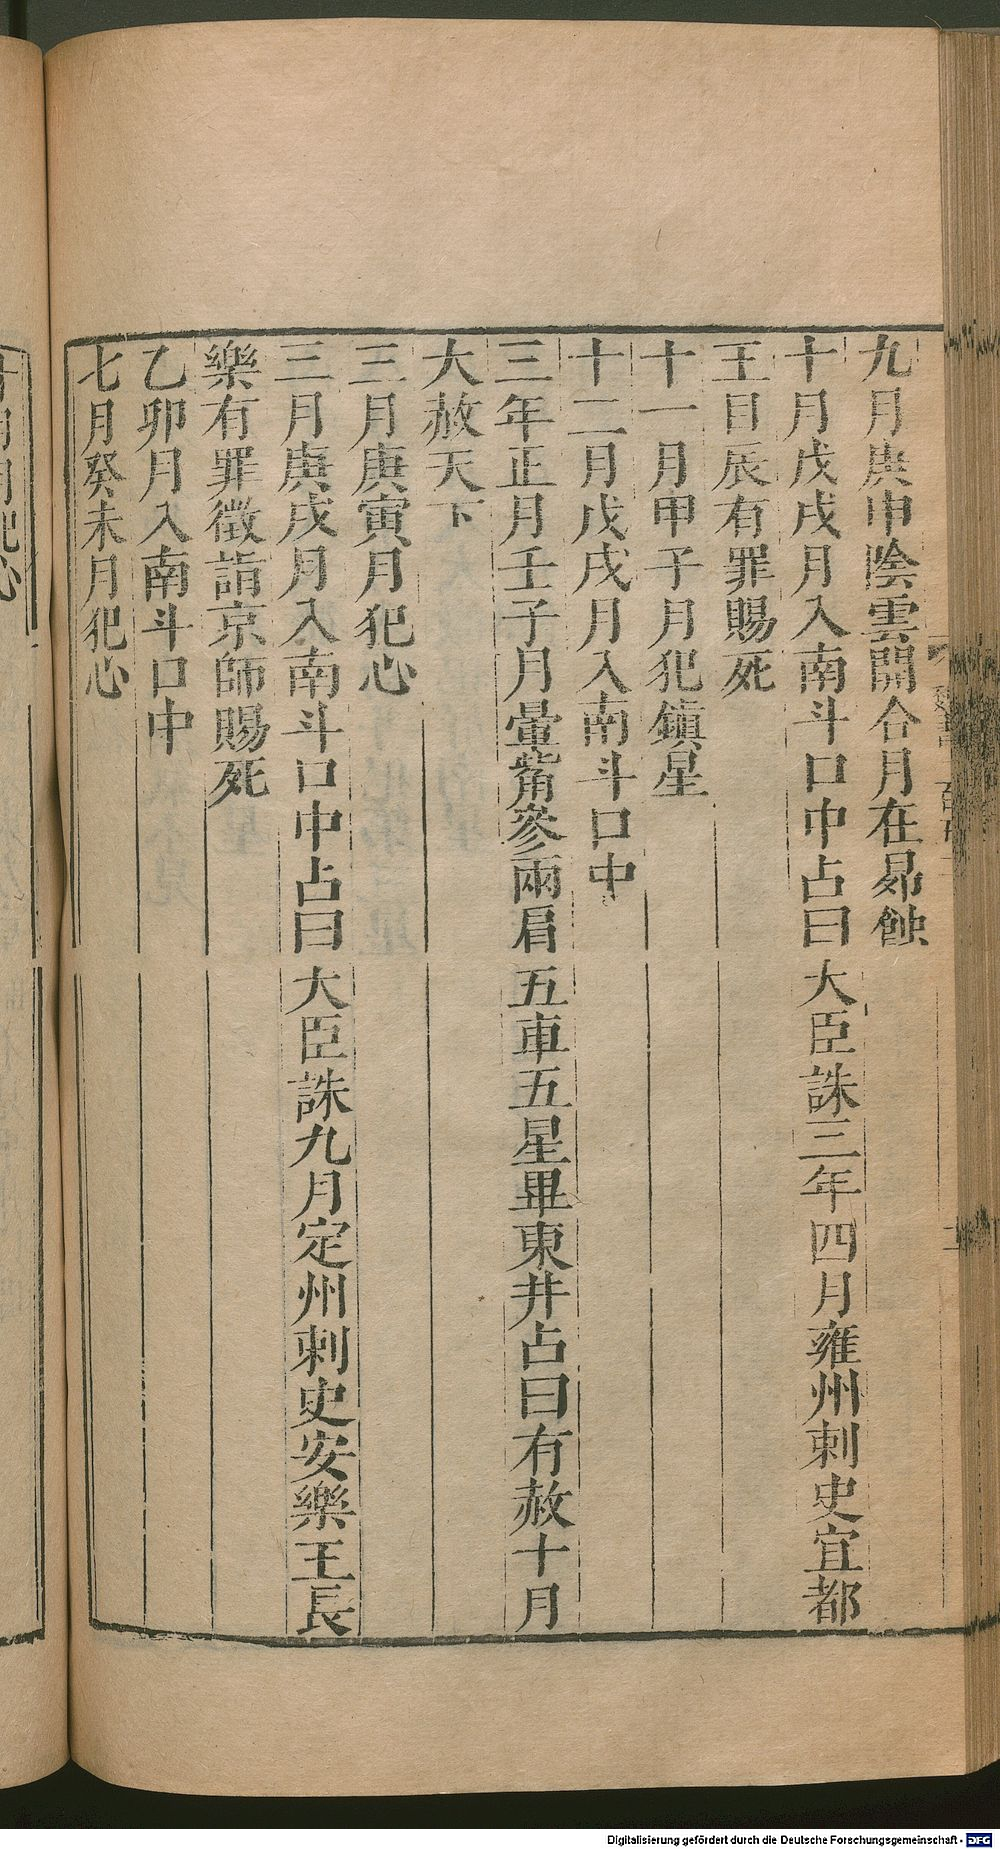 九月庚申陰雲開合月在昴蝕
十月戊戌月入南斗口中占曰大臣誅三年四月雍州刺史宜都
王目辰有罪賜死
十一月甲子月犯鎮星
十二月戊戌月入南斗口中
三年正月壬子月暈觜參兩肩五車五星畢東井占曰有赦十月
大赦天下
三月庚寅月犯心
三月庚戌月入南斗口中占曰大臣誅九月定州刺史安樂王長
樂有罪徵詣京師賜死
乙卯月入南斗口中
七月癸未月犯心
月犯心
Digitalisierung gefördert durch die Deutsche Forschungsgemeinschaft - DFG